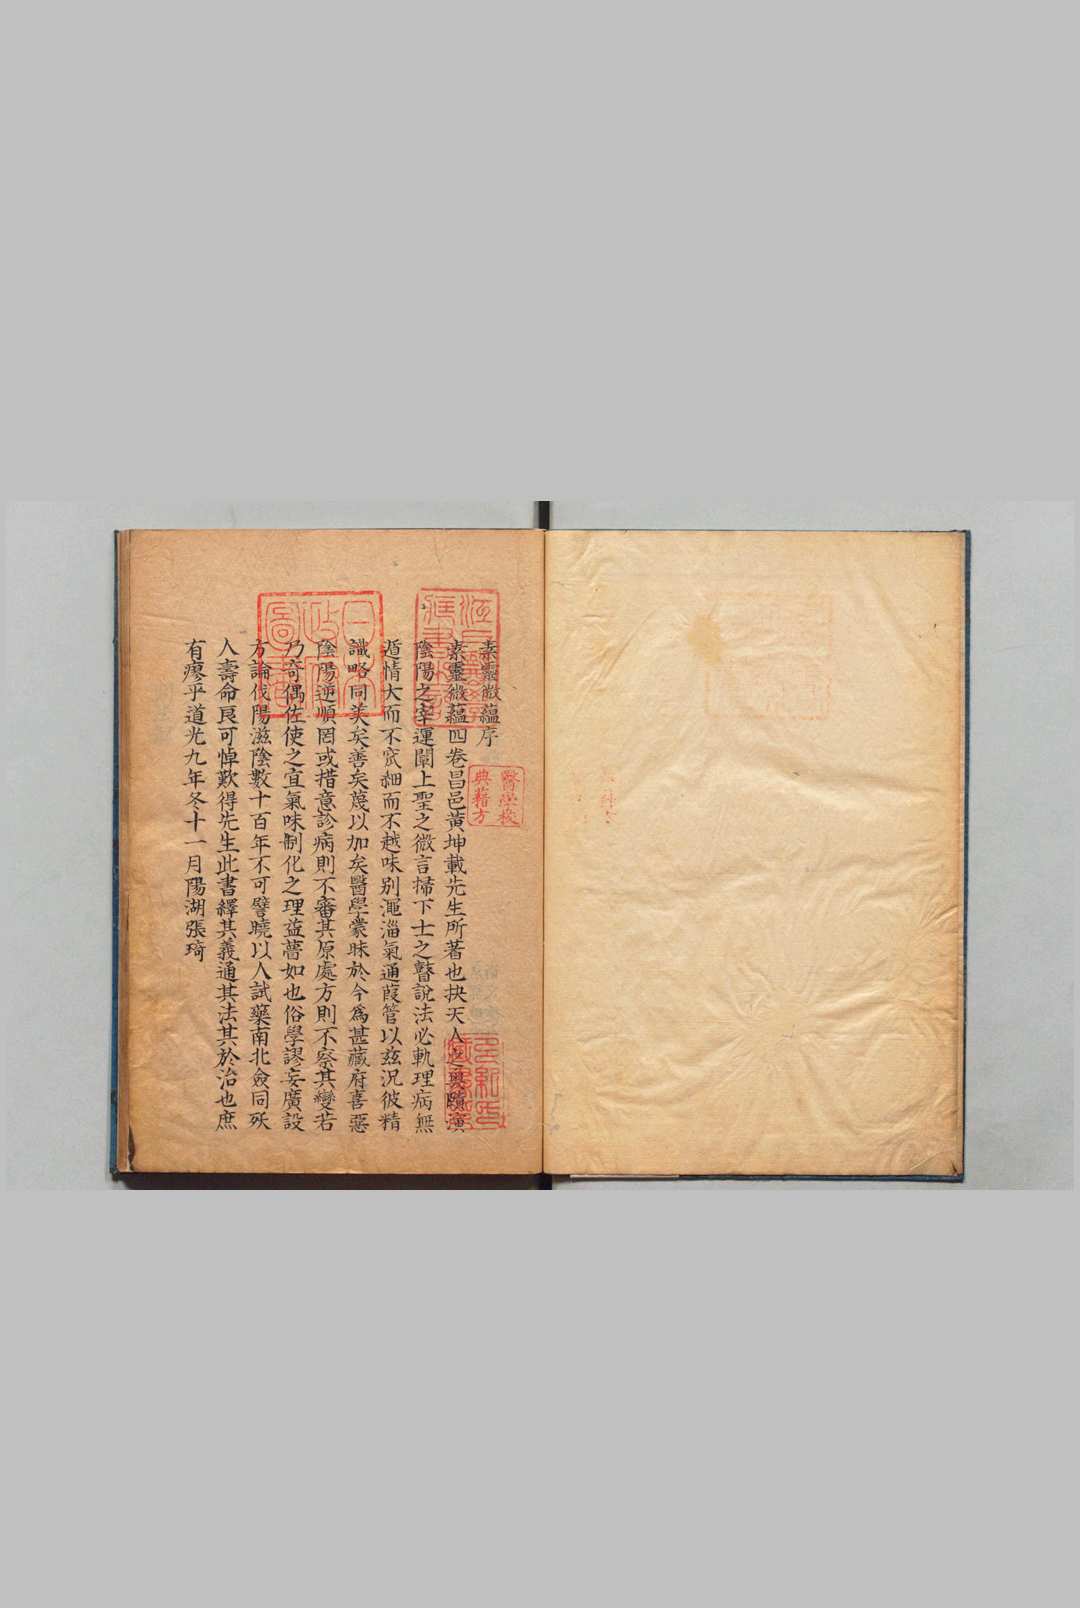 素靈微蘊序
素靈微蘊四卷昌邑黃坤載先生所著也抉天人之奧賾演
陰陽之宰運闡上聖之微言掃下士之瞽說法必軌理病無
遁情大而不窕細而不越味別澠淄氣通葭管以茲況彼精
識略同美矣善矣蔑以加矣醫學蒙昧於今爲甚藏府喜惡
陰陽逆順罔或措意診病則不審其原處方則不察其變若
乃奇偶佐使之宜氣味制化之理益瞢如也俗學謬妄廣設
方論伐陽滋陰數十百年不可譬曉以人試藥南北僉同殀
人壽命良可悼歎得先生此書繹其義通其法其於治也庶
有瘳乎道光九年冬十一月陽湖張琦
醫學校
典藉方